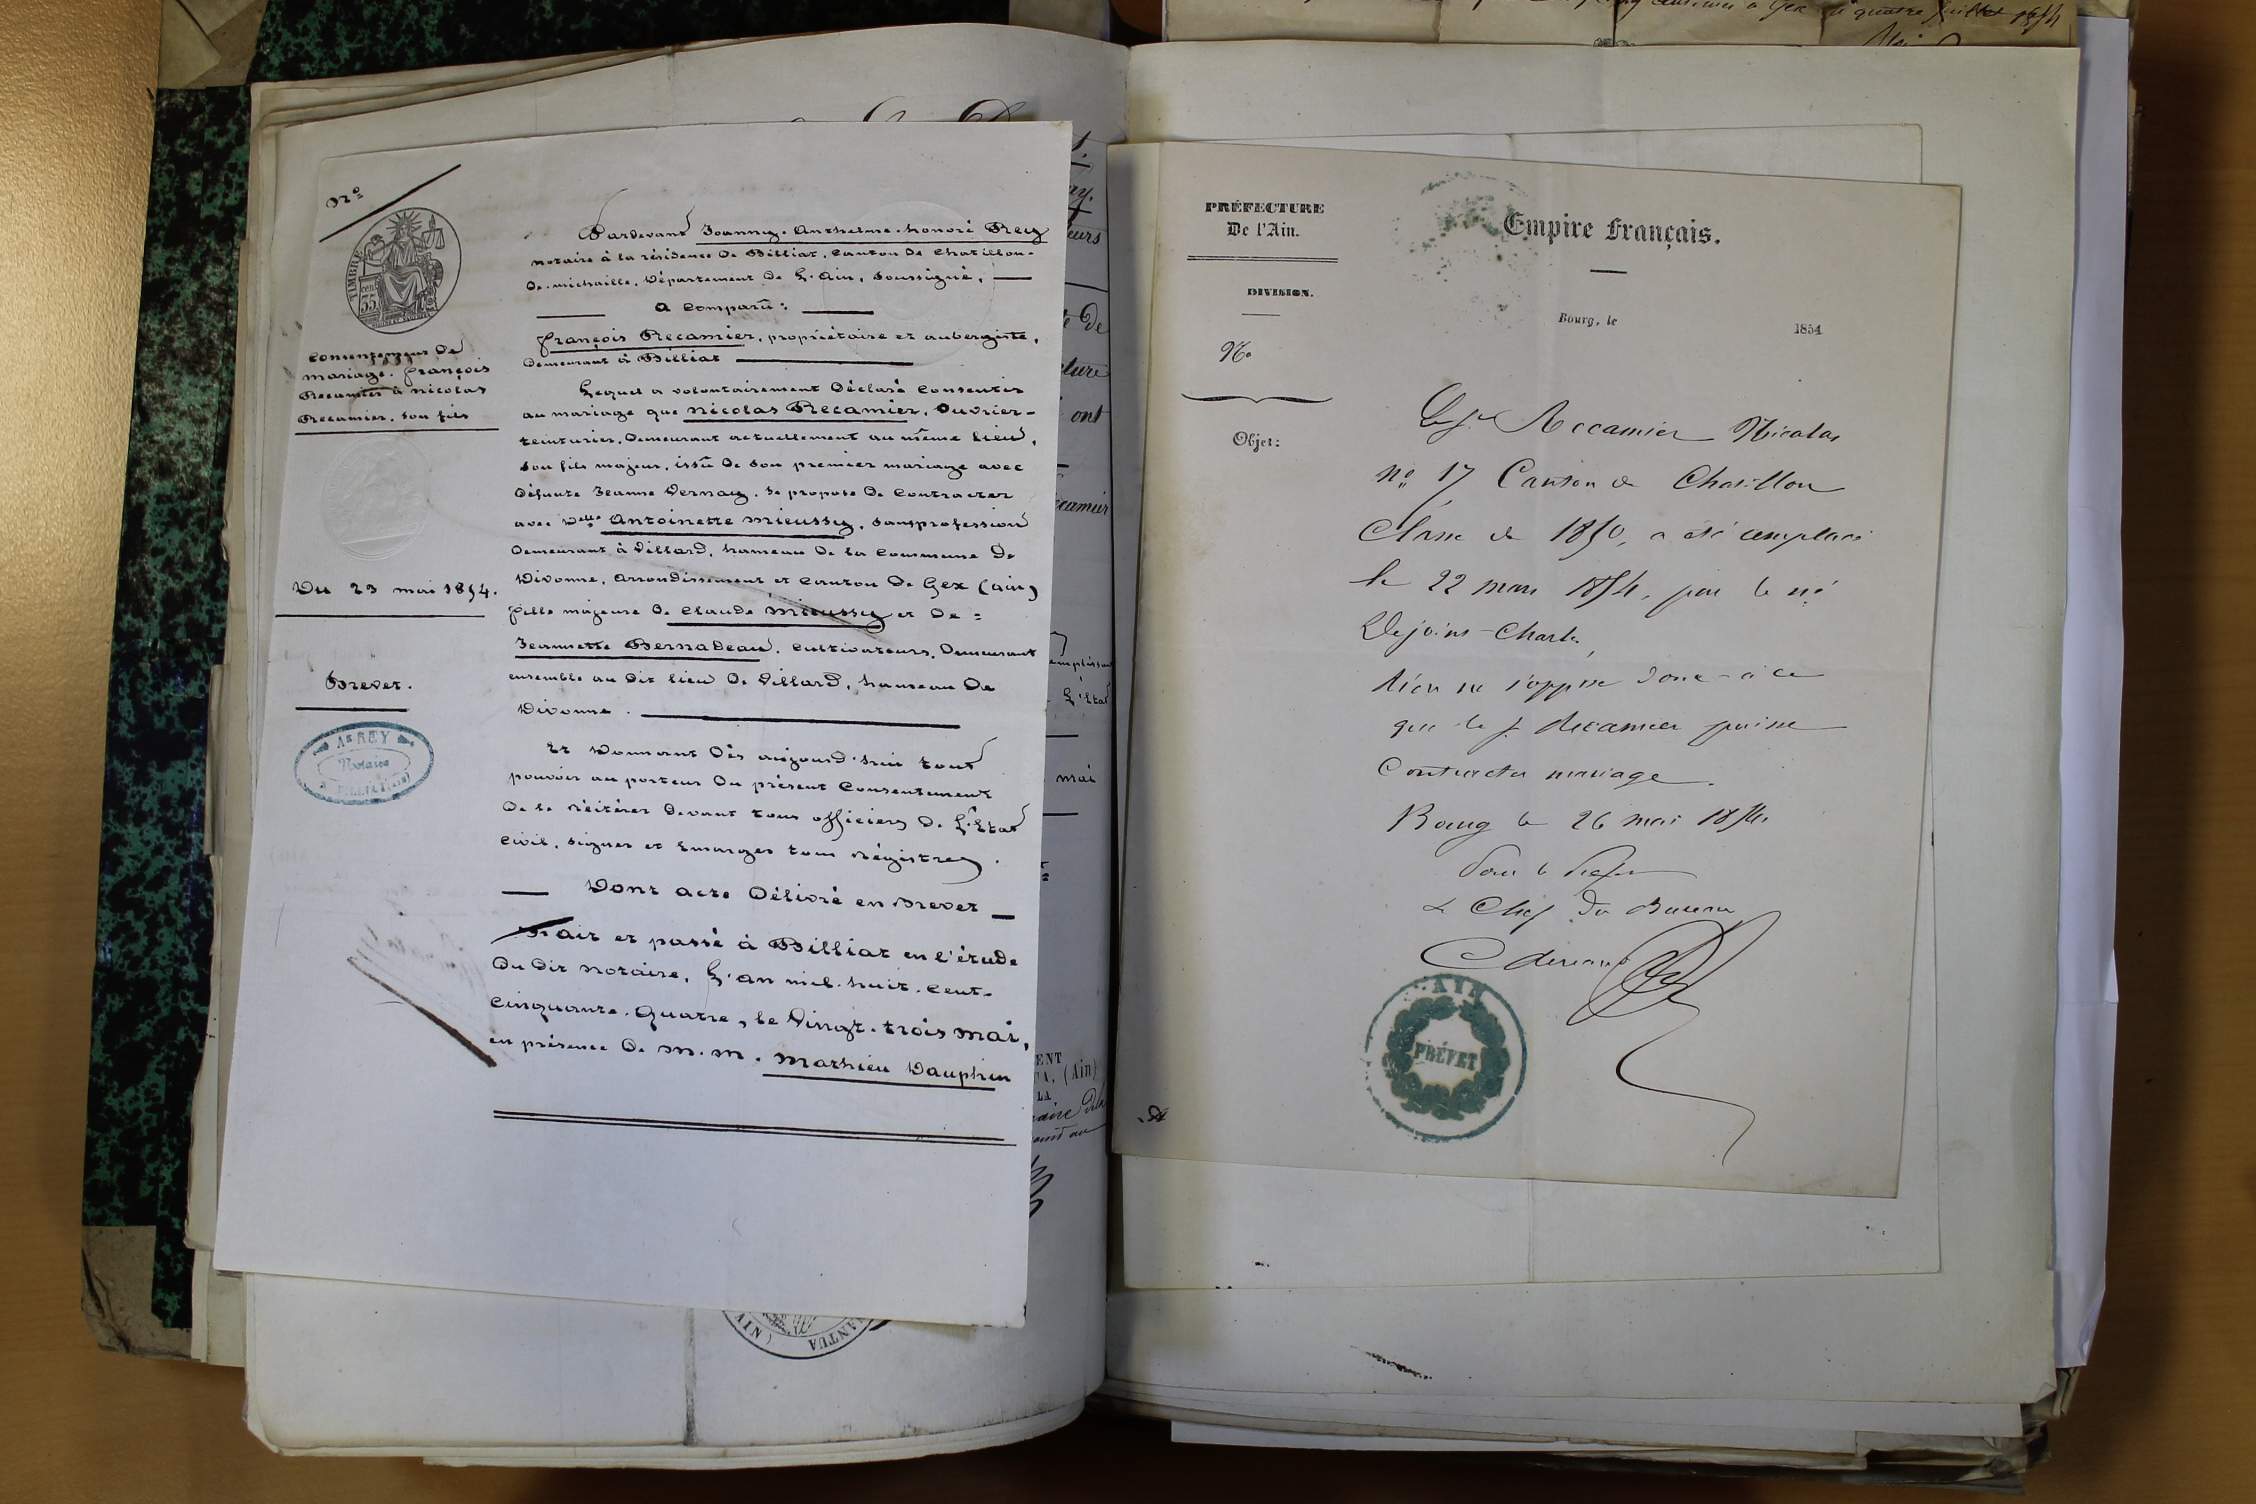 Nº
TIMBRE
35
cent
Consentement de
mariage. François
Recamier à Nicolas
Recamier, son fils
Du 23 mai 1854.
Brevet.
Aé REY
Notaire
Pardevant Joanny-Anthelme-honoré Rey
notaire à la résidence de Billiat, canton de Chatillon-
de-michaille, Département de L'Ain, soussigné,
a comparu :
François Recamier, propriétaire et aubergiste,
demeurant à Billiat
Lequel a volontairement déclaré consentir
au mariage que Nicolas Recamier, ouvrier-
teinturier, demeurant actuellement au même lieu,
son fils majeur, issu de son premier mariage avec
défunte Jeanne Vernay, se propose de contracter
avec Delle Antoinette Mieussy, sans profession
demeurant à Villard, hameau de la commune de
Divonne, arrondissement et canton de Gex (ain)
fille majeure de Claude Mieussy et de =
Jeannette Bernadeau, cultivateurs, demeurant
ensemble au dit lieu de Villard, hameau de
Divonne.
Et donnant dès aujourd'hui tout
pouvoir au porteur du présent consentement
de le réitérer devant tous officiers de L'Etat
civil, signer et émarger tous régistres.
Dont acte délivré en brevet
Fait et passé à Billiat en l'étude
du dit notaire, L'an mil-huit-cent-
cinquante-quatre, le vingt-trois mai,
en présence de M.M. Mathieu Dauphin
eurs
de
ture
ont
camier
L'Etat
mai
ENT
(Ain)
LA
MANTUA
(AIN)
PRÉFECTURE
De l'Ain.
DIVISION.
No
Objet:
Empire Français.
Bourg, le 1854
Le Sr Recamier Nicolas
nº 17 Canton de Chatillon
Classe de 1850, a été remplacé
le 22 mars 1854, par le né
Dejoins-Charles,
Rien ne s'oppose donc à ce
que le Sr Recamier puisse
Contracter mariage.
Bourg le 26 mai 1854.
Pour le Préfet
Le Chef du Bureau
AIN
PRÉFET